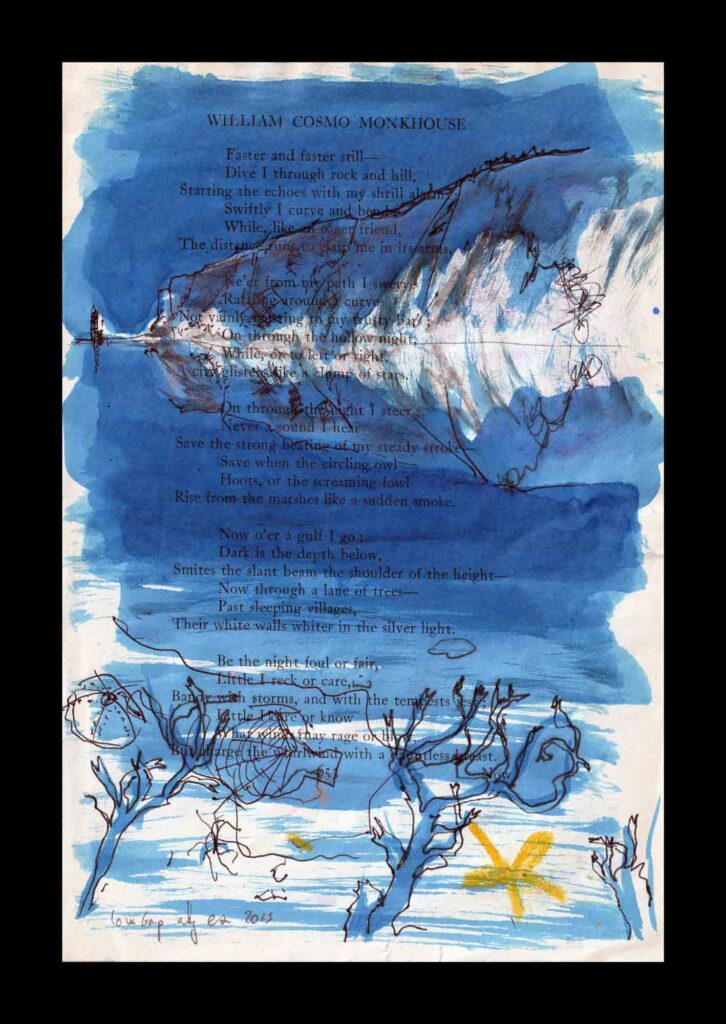 WILLIAM COSMO MONKHOUSE
Faster and faster still—
Dive I through rock and hill,
Starting the echoes with my shrill alarms;
Swiftly I curve and bend;
While, like an eager friend,
The distance runs to clasp me in its arms.
Ne'er from my path I swerve
Rattling around a curve
Not vainly trusting to my trusty bars;
On through the hollow night,
While, or to left or right,
A city glistens like a clump of stars.
On through the night I steer;
Never a sound I hear
Save the strong beating of my steady stroke—
Save when the circling owl
Hoots, or the screaming fowl
Rise from the marshes like a sudden smoke.
Now o'er a gulf I go;
Dark is the depth below,
Smites the slant beam the shoulder of the height—
Now through a lane of trees—
Past sleeping villages,
Their white walls whiter in the silver light.
Be the night foul or fair,
Little I reck or care,
Bandy with storms, and with the tempests jest;
Little I care or know
What winds may rage or blow,
But charge the whirlwind with a dauntless breast.
Now
2013